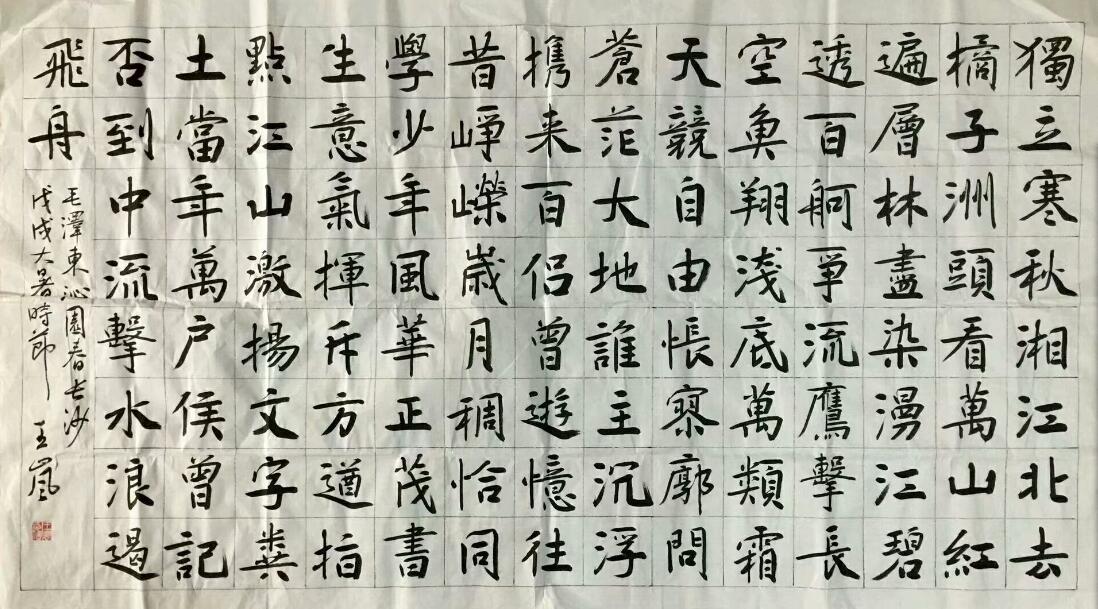 獨立寒秋湘江北去
橘子洲頭看萬山紅
遍層林盡染漫江碧
透百舸爭流鷹擊長
空魚翔淺底萬類霜
天競自由悵寥廓問
蒼茫大地誰主沉浮
携来百侣曾遊憶往
昔崢嶸歲月稠恰同
學少年風華正茂書
生意氣揮斥方遒指
點江山激揚文字糞
土當年萬户侯曾記
否到中流擊水浪遏
飛舟
毛澤東沁園春长沙
戊戌大暑時節 王嵐